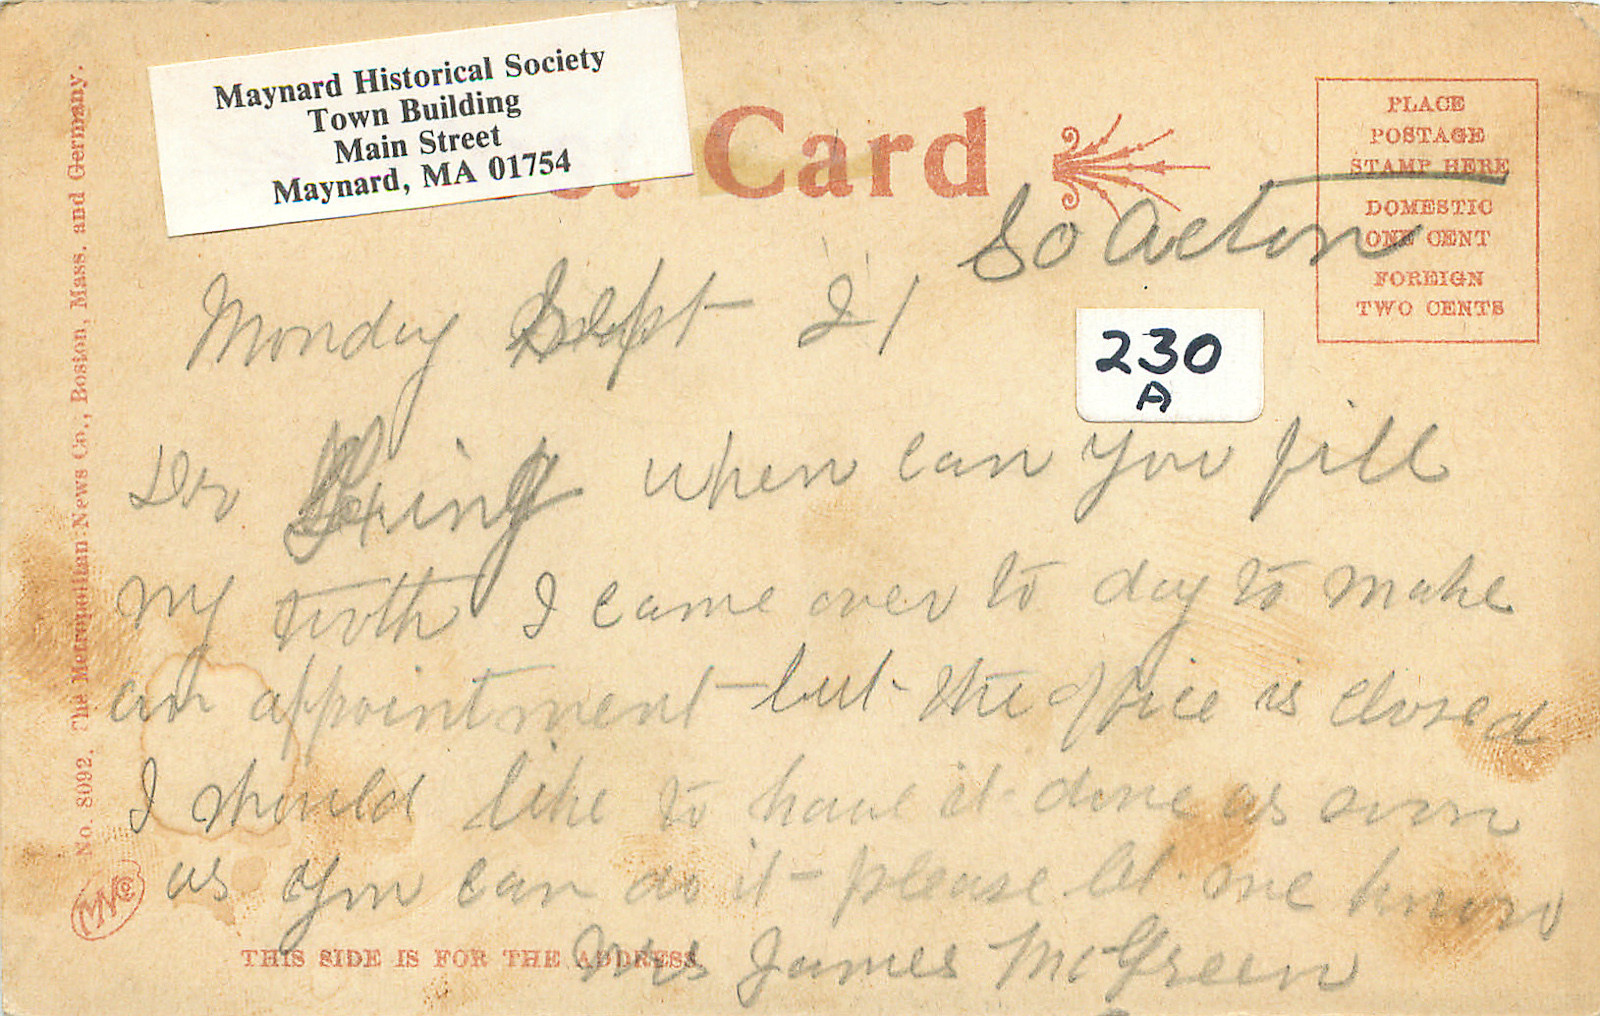 Maynard Historical Society
Town Building
Main Street
Maynard, MA 01754
Card
PLACE
POSTAGE
STAMP HERE
DOMESTIC
ONE CENT
FOREIGN
TWO CENTS
So Acton
Monday Sept 21
230
A
Dr when can you fill
my tooth I came over to day to make
an appointment but the office is closed
I should like to have it done as soon
as you can do it - please let me know
Mrs James McGreen
THIS SIDE IS FOR THE ADDRESS.
No. 8092. The Metropolitan News Co., Boston, Mass. and Germany.
MNCo